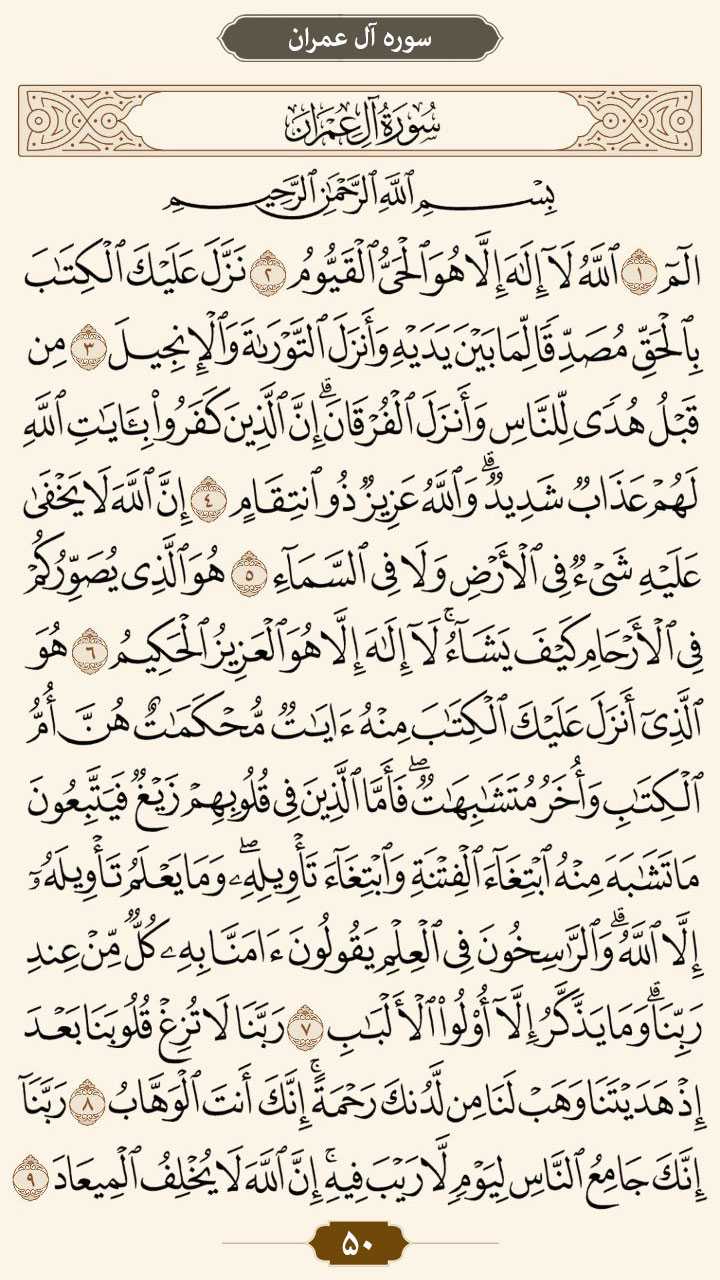 سوره آل عمران
سُورَةُ آلِ عِمْرَان
بِسْمِ ٱللَّهِ ٱلرَّحْمَٰنِ ٱلرَّحِيمِ
الٓمٓ ١ ٱللَّهُ لَآ إِلَٰهَ إِلَّا هُوَ ٱلْحَىُّ ٱلْقَيُّومُ ٢ نَزَّلَ عَلَيْكَ ٱلْكِتَٰبَ
بِٱلْحَقِّ مُصَدِّقًا لِّمَا بَيْنَ يَدَيْهِ وَأَنزَلَ ٱلتَّوْرَىٰةَ وَٱلْإِنجِيلَ ٣ مِن
قَبْلُ هُدًى لِّلنَّاسِ وَأَنزَلَ ٱلْفُرْقَانَ ۗ إِنَّ ٱلَّذِينَ كَفَرُوا۟ بِـَٔايَٰتِ ٱللَّهِ
لَهُمْ عَذَابٌ شَدِيدٌ ۗ وَٱللَّهُ عَزِيزٌ ذُو ٱنتِقَامٍ ٤ إِنَّ ٱللَّهَ لَا يَخْفَىٰ
عَلَيْهِ شَىْءٌ فِى ٱلْأَرْضِ وَلَا فِى ٱلسَّمَآءِ ٥ هُوَ ٱلَّذِى يُصَوِّرُكُمْ
فِى ٱلْأَرْحَامِ كَيْفَ يَشَآءُ ۚ لَآ إِلَٰهَ إِلَّا هُوَ ٱلْعَزِيزُ ٱلْحَكِيمُ ٦ هُوَ
ٱلَّذِىٓ أَنزَلَ عَلَيْكَ ٱلْكِتَٰبَ مِنْهُ ءَايَٰتٌ مُّحْكَمَٰتٌ هُنَّ أُمُّ
ٱلْكِتَٰبِ وَأُخَرُ مُتَشَٰبِهَٰتٌ ۖ فَأَمَّا ٱلَّذِينَ فِى قُلُوبِهِمْ زَيْغٌ فَيَتَّبِعُونَ
مَا تَشَٰبَهَ مِنْهُ ٱبْتِغَآءَ ٱلْفِتْنَةِ وَٱبْتِغَآءَ تَأْوِيلِهِۦ ۖ وَمَا يَعْلَمُ تَأْوِيلَهُۥٓ
إِلَّا ٱللَّهُ ۗ وَٱلرَّٰسِخُونَ فِى ٱلْعِلْمِ يَقُولُونَ ءَامَنَّا بِهِۦ كُلٌّ مِّنْ عِندِ
رَبِّنَا ۗ وَمَا يَذَّكَّرُ إِلَّآ أُو۟لُوا۟ ٱلْأَلْبَٰبِ ٧ رَبَّنَا لَا تُزِغْ قُلُوبَنَا بَعْدَ
إِذْ هَدَيْتَنَا وَهَبْ لَنَا مِن لَّدُنكَ رَحْمَةً ۚ إِنَّكَ أَنتَ ٱلْوَهَّابُ ٨ رَبَّنَآ
إِنَّكَ جَامِعُ ٱلنَّاسِ لِيَوْمٍ لَّا رَيْبَ فِيهِ ۚ إِنَّ ٱللَّهَ لَا يُخْلِفُ ٱلْمِيعَادَ ٩
۵۰